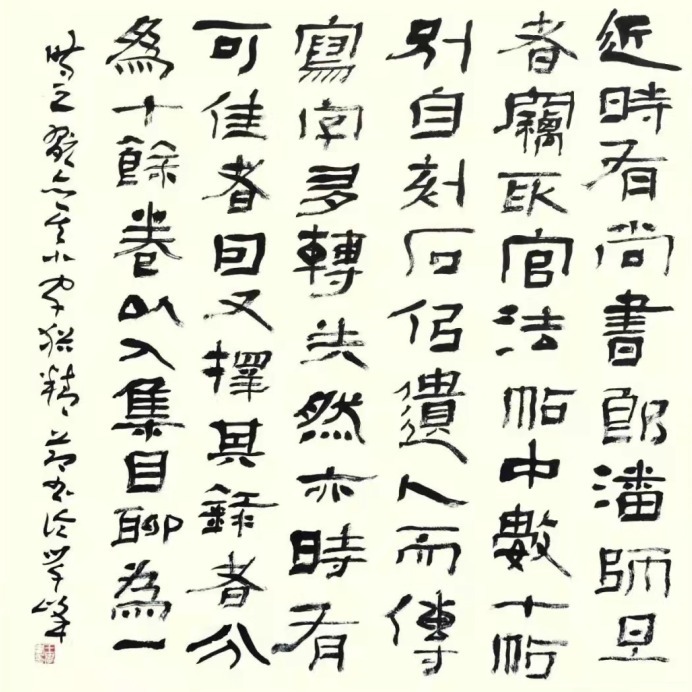 近時有尚書郎潘師旦
者竊取官法帖中數十帖
別自刻石㠯遺人而傳
寫字多轉失然亦時有
可佳者因又擇其錄者分
為十餘卷以入集目聊為一
時之翫其小字猶精